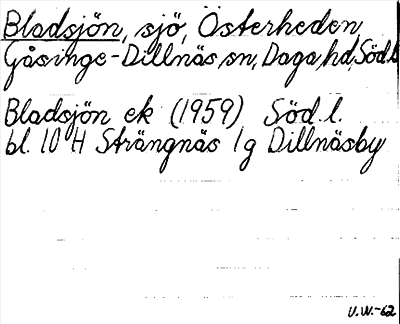 Bladsjön, sjö, Österheden
Gåsinge-Dillnäs sn, Daga hd, Söd.l.
Bladsjön ek (1959) Söd.l.
bl. 10 H Strängnäs 1g Dillnäsby
U.W.-62